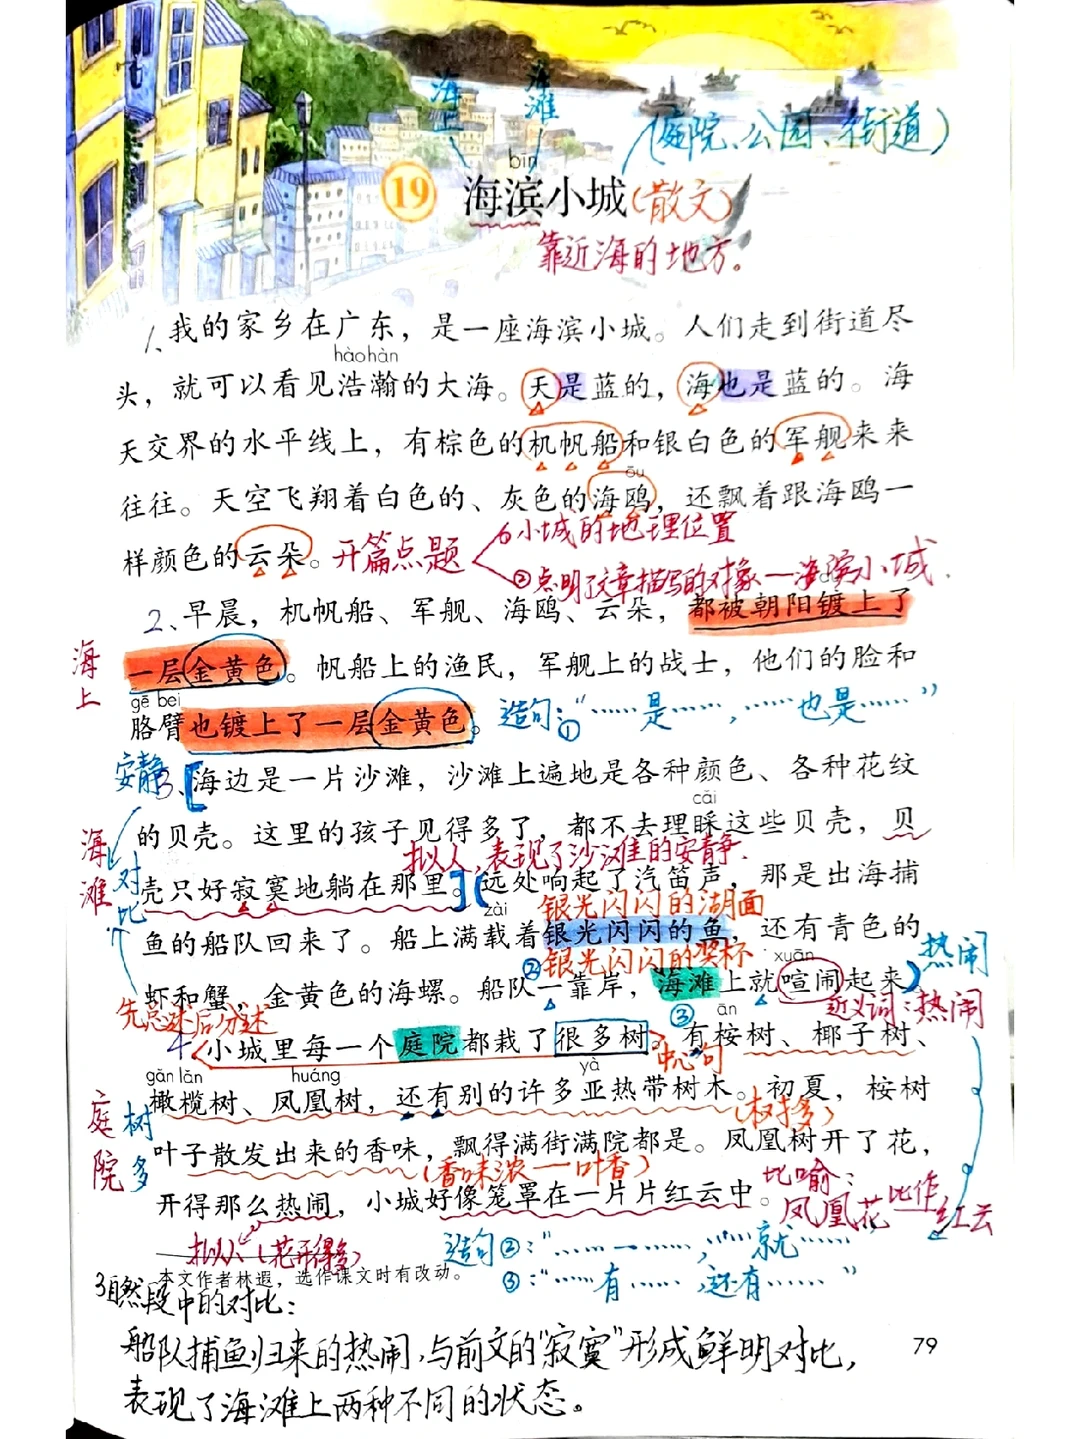 海上
海滩
(庭院、公园、街道)
bīn
19 海滨小城(散文)
靠近海的地方。
1、我的家乡在广东，是一座海滨小城。人们走到街道尽
hàohàn
头，就可以看见浩瀚的大海。天是蓝的，海也是蓝的。海
天交界的水平线上，有棕色的机帆船和银白色的军舰来来
ōu
往往。天空飞翔着白色的、灰色的海鸥，还飘着跟海鸥一
样颜色的云朵。开篇点题
①小城的地理位置
②点明了文章描写的对象—海滨小城.
2、早晨，机帆船、军舰、海鸥、云朵，都被朝阳镀上了
海上
一层金黄色。帆船上的渔民，军舰上的战士，他们的脸和
gē bei
胳臂也镀上了一层金黄色。造句：①“……是……，……也是……”
安静
3、海边是一片沙滩，沙滩上遍地是各种颜色、各种花纹
cǎi
的贝壳。这里的孩子见得多了，都不去理睬这些贝壳，贝
海滩
对比
拟人，表现了沙滩的安静.
壳只好寂寞地躺在那里。远处响起了汽笛声，那是出海捕
zài
银光闪闪的湖面
鱼的船队回来了。船上满载着银光闪闪的鱼，还有青色的
②银光闪闪的奖杯
xuān
热闹
虾和蟹，金黄色的海螺。船队一靠岸，海滩上就喧闹起来。
近义词：热闹
先总述后分述
③
ān
4 小城里每一个庭院都栽了很多树。有桉树、椰子树、
中心句
gǎn lǎn huáng yà
橄榄树、凤凰树，还有别的许多亚热带树木。初夏，桉树
(树多)
庭院
树多
叶子散发出来的香味，飘得满街满院都是。凤凰树开了花，
(香味浓—叶香)
开得那么热闹，小城好像笼罩在一片片红云中。
比喻：
凤凰花比作红云
拟人(花开得多)
造句②：“……一……，……就……”
③：“……有……，还有……”
本文作者林遐，选作课文时有改动。
3自然段中的对比：
船队捕鱼归来的热闹，与前文的“寂寞”形成鲜明对比，
79
表现了海滩上两种不同的状态。